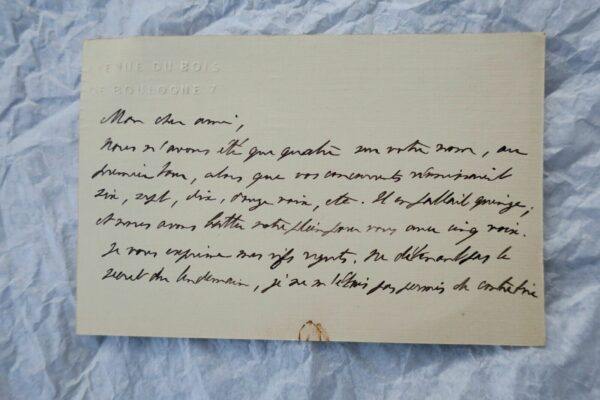 AVENUE DU BOIS
DE BOULOGNE 7
Mon cher ami,
Nous n'avons été que quatre sur votre nom, au
premier tour, alors que vos concurrents réunissaient
six, sept, dix, onze voix, etc. Il en fallait quinze;
et nous avons votre pour vous avec cinq voix.
Je vous exprime mes vifs regrets. Ne détenant pas le
secret du lendemain, je ne m'étais pas permis de contredire